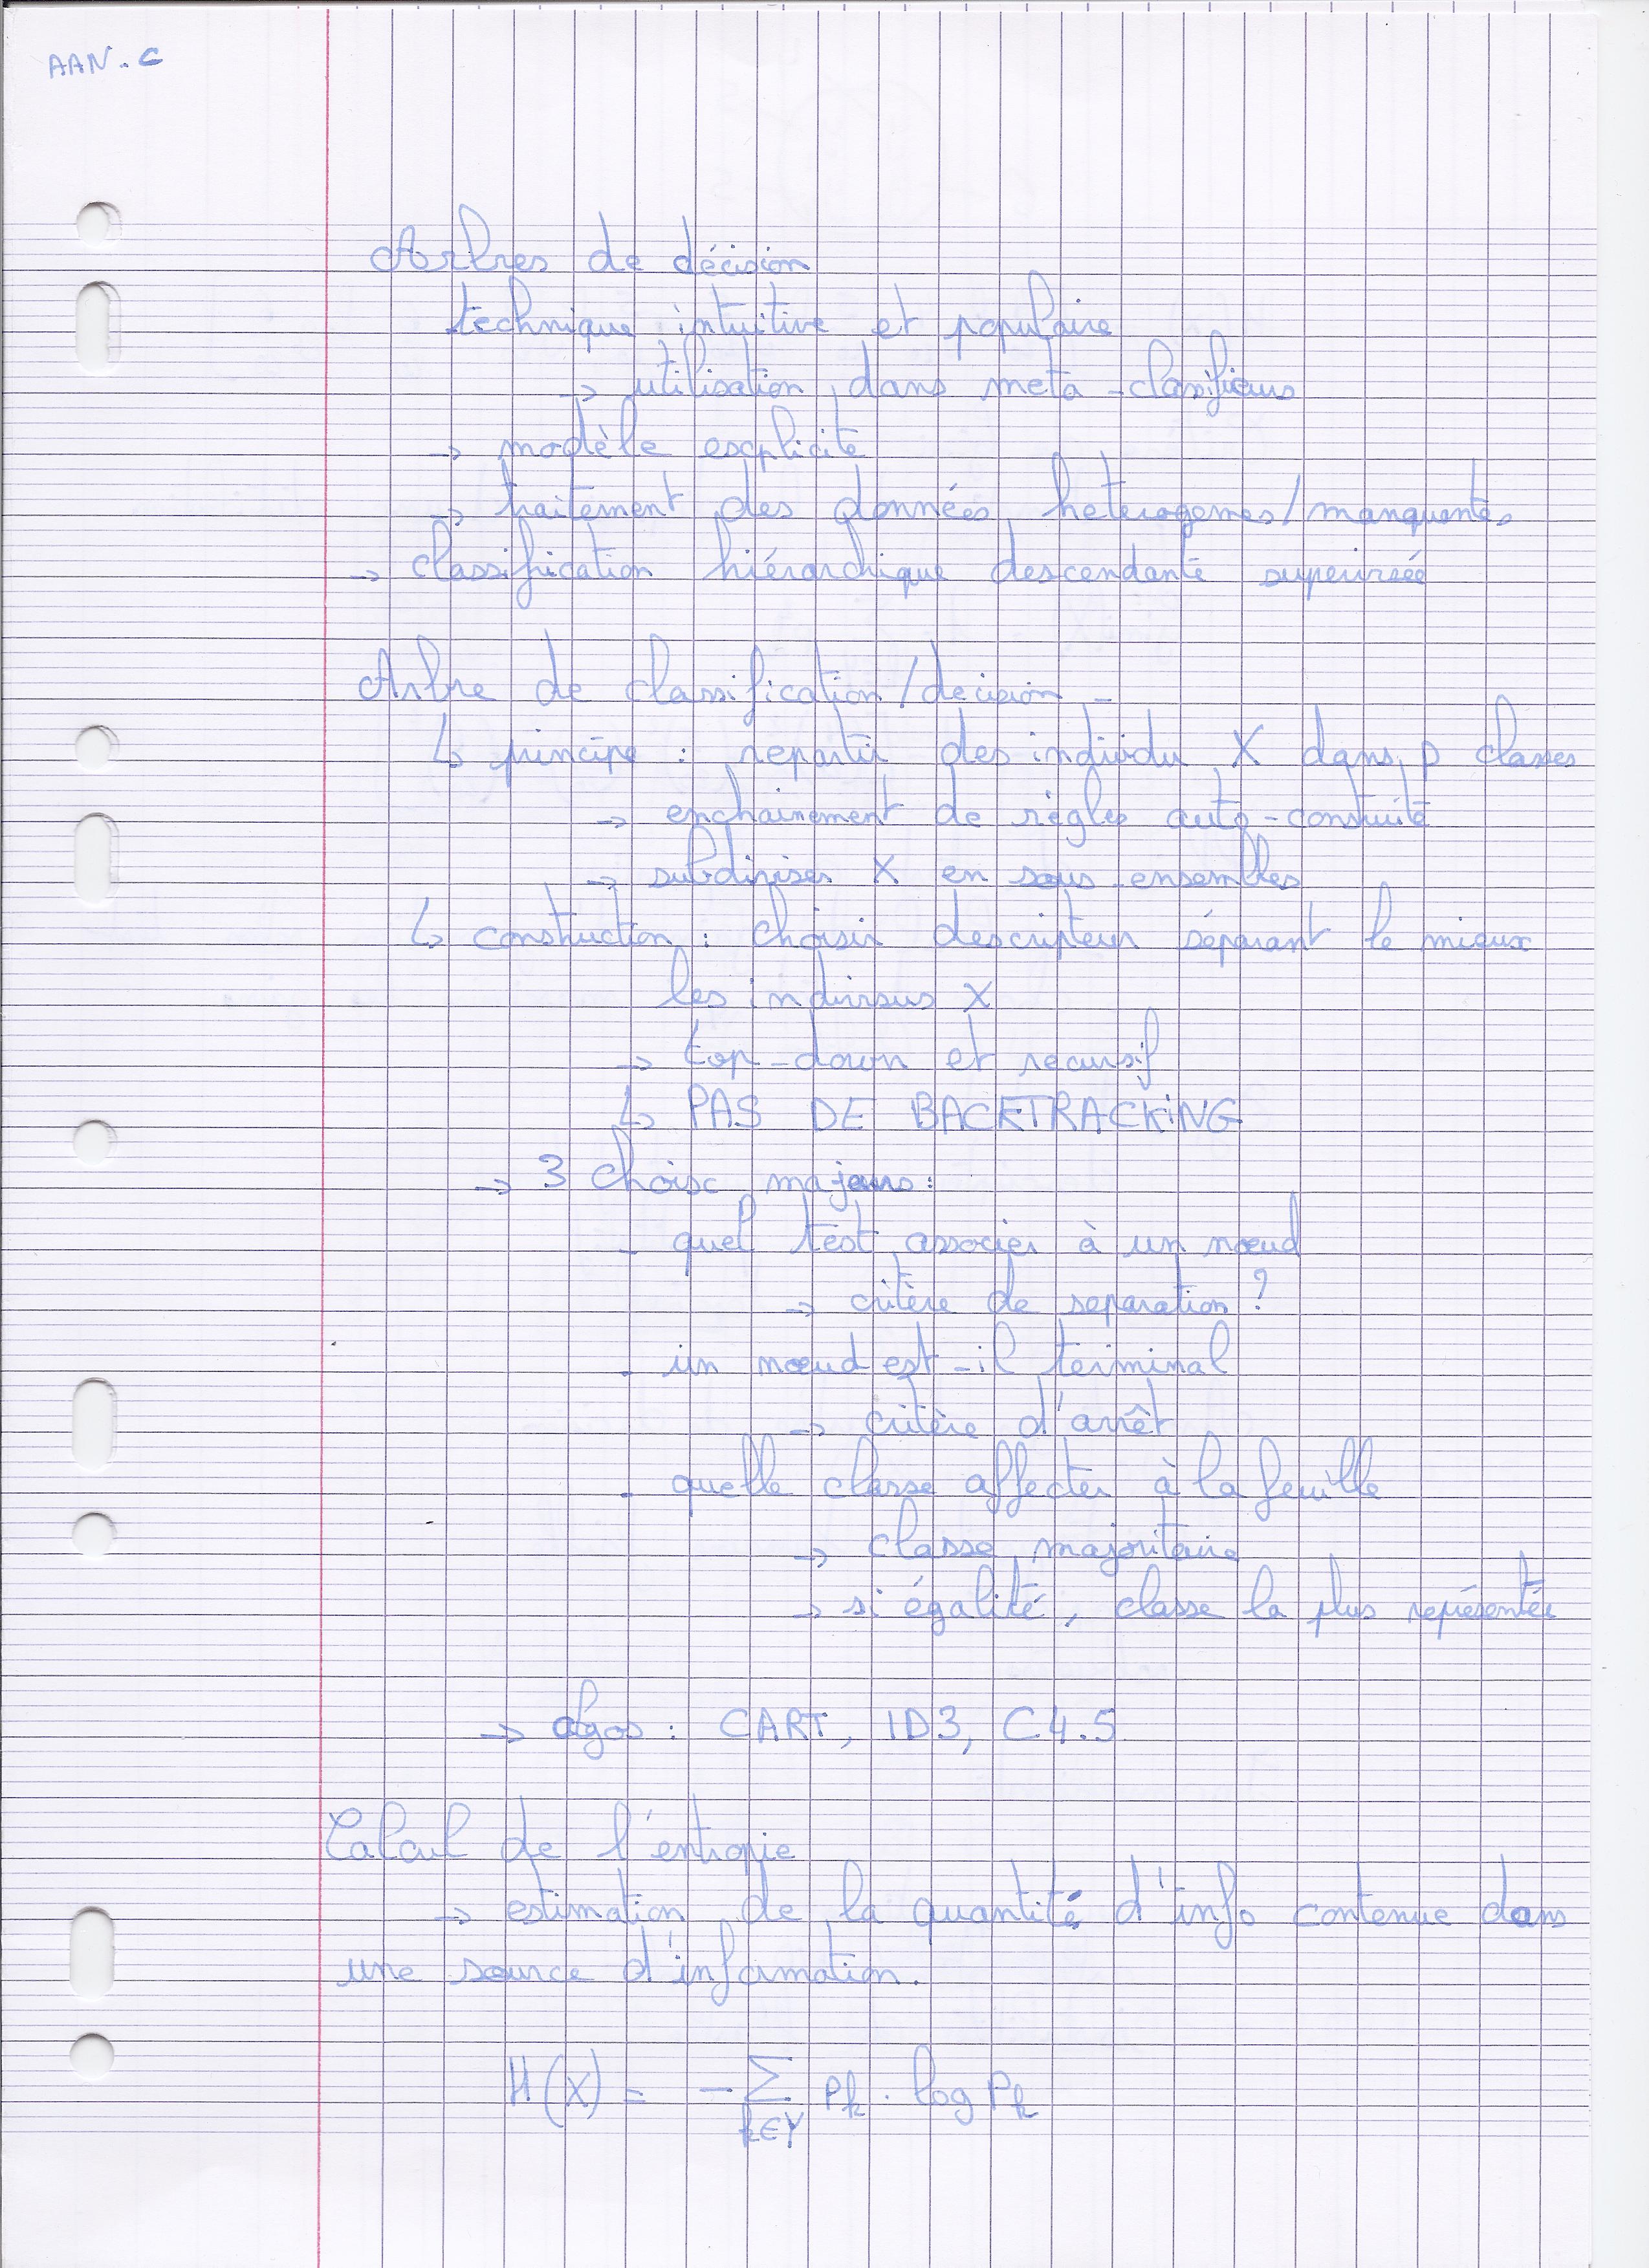 AAN. C
Arbres de décision
technique intuitive et populaire
→ utilisation dans meta-classifieurs
→ modèle explicite
→ traitement des données heterogenes/manquantes
→ classification hiérarchique descendante supervisée
Arbre de classification/decision -
↳ principe : repartir des individu X dans p classes
→ enchainement de règles auto-construite
→ subdiviser X en sous-ensembles
↳ construction : choisir descripteur séparant le mieux
les individus X
→ top-down et recursif
↳ PAS DE BACKTRACKING
→ 3 choix majeurs :
- quel test associer à un nœud
→ critère de separation ?
- un nœud est-il terminal
→ critère d'arrêt
- quelle classe affecter à la feuille
→ classe majoritaire
→ si égalité, classe la plus représentée
→ algos : CART, ID3, C4.5
Calcul de l'entropie
→ estimation de la quantité d'info contenue dans
une source d'information.
H(X) = - ∑ k∈Y Pk . log Pk